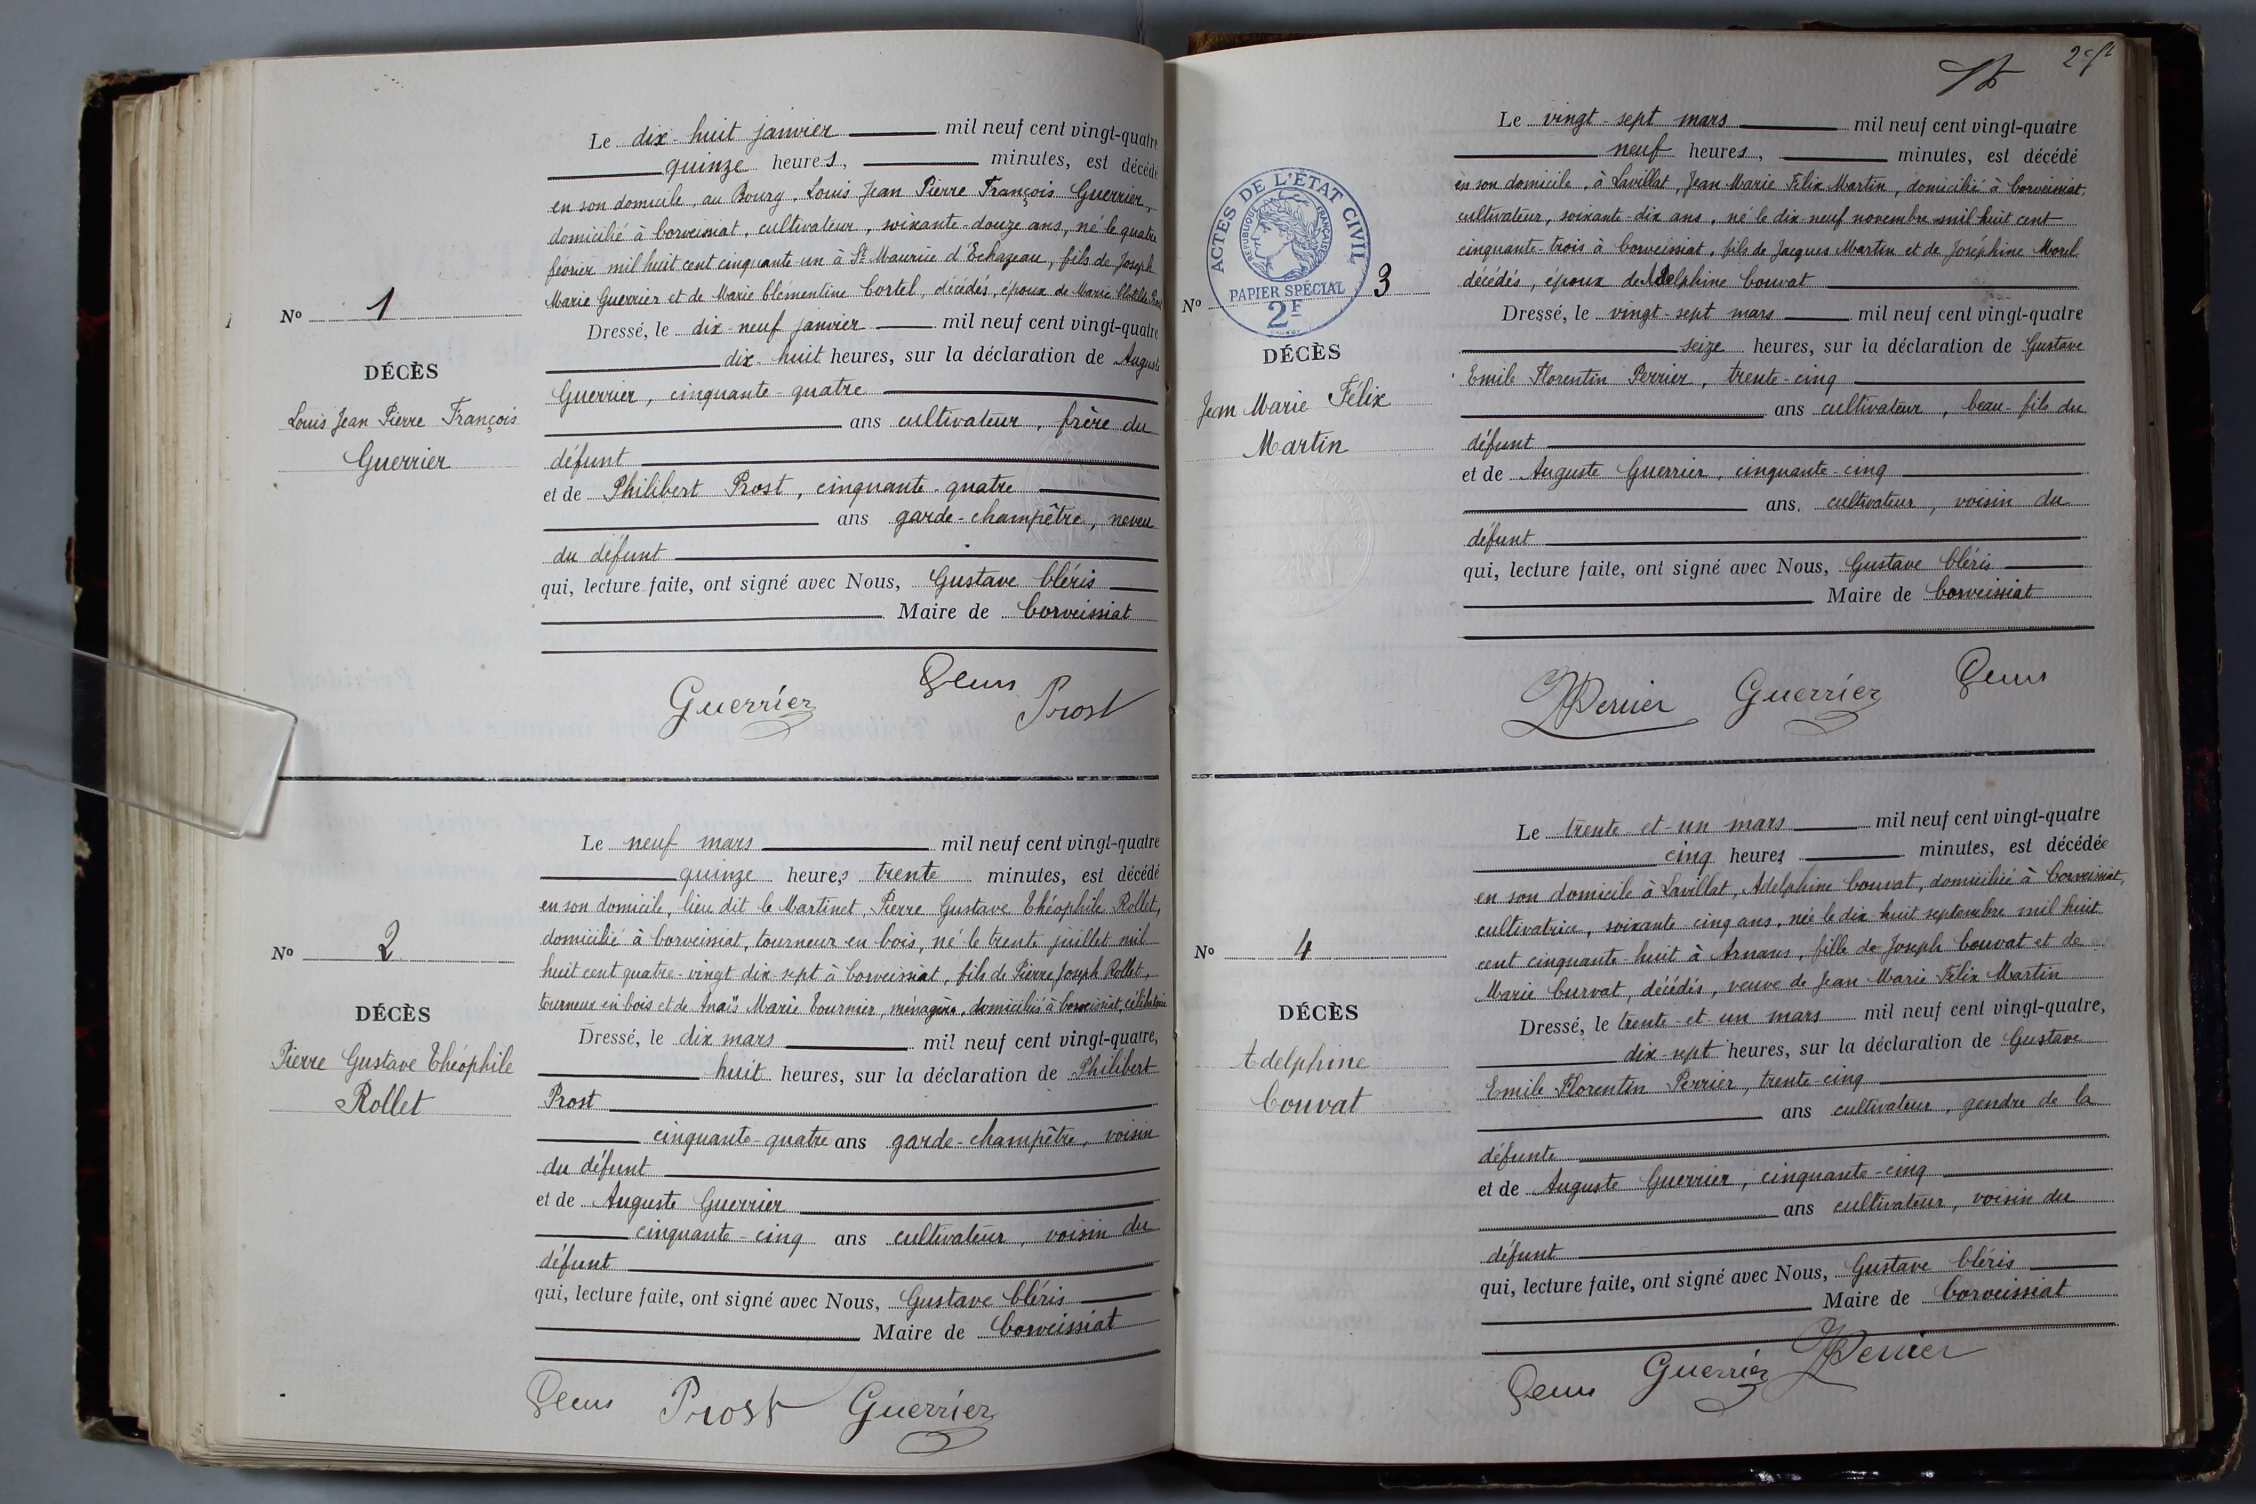 Le dix-huit janvier mil neuf cent vingt-quatre
quinze heures, minutes, est décédé
en son domicile, au Bourg, Louis Jean Pierre François Guerrier,
domicilié à Corveissiat, cultivateur, soixante-douze ans, né le quatre
février mil huit cent cinquante-un à St Maurice d'Echazeau, fils de Joseph
Marie Guerrier et de Marie Clémentine Cortel, décédés, époux de Marie Clotilde Prost
Nº 1
Dressé, le dix-neuf janvier mil neuf cent vingt-quatre
dix-huit heures, sur la déclaration de Auguste
DÉCÈS
Guerrier, cinquante-quatre
Louis Jean Pierre François
ans cultivateur, frère du
Guerrier
défunt
et de Philibert Prost, cinquante-quatre
ans garde-champêtre, neveu
du défunt
qui, lecture faite, ont signé avec Nous, Gustave Cléris
Maire de Corveissiat
Guerrier Prost
Le neuf mars mil neuf cent vingt-quatre
quinze heures trente minutes, est décédé
en son domicile, lieu dit le Martinet, Pierre Gustave Théophile Rollet,
domicilié à Corveissiat, tourneur en bois, né le trente juillet mil
Nº 2
huit cent quatre-vingt dix-sept à Corveissiat, fils de Pierre Joseph Rollet,
tourneur en bois et de Anaïs Marie Tournier, ménagère, domiciliés à Corveissiat, célibataire
DÉCÈS
Dressé, le dix mars mil neuf cent vingt-quatre,
Pierre Gustave Théophile
huit heures, sur la déclaration de Philibert
Rollet
Prost
cinquante-quatre ans garde-champêtre, voisin
du défunt
et de Auguste Guerrier
cinquante-cinq ans cultivateur, voisin du
défunt
qui, lecture faite, ont signé avec Nous, Gustave Cléris
Maire de Corveissiat
Prost Guerrier
Le vingt-sept mars mil neuf cent vingt-quatre
neuf heures, minutes, est décédé
en son domicile, à Lavillat, Jean Marie Félix Martin, domicilié à Corveissiat,
cultivateur, soixante-dix ans, né le dix-neuf novembre mil huit cent
cinquante-trois à Corveissiat, fils de Jacques Martin et de Joséphine Morel
décédés, époux de Adelphine Couvat
ACTES DE L'ÉTAT CIVIL
RÉPUBLIQUE FRANÇAISE
PAPIER SPÉCIAL
2F
Nº 3
Dressé, le vingt-sept mars mil neuf cent vingt-quatre
DÉCÈS
seize heures, sur la déclaration de Gustave
Emile Florentin Perrier, trente-cinq
Jean Marie Félix
ans cultivateur, beau-fils du
Martin
défunt
et de Auguste Guerrier, cinquante-cinq
ans, cultivateur, voisin du
défunt
qui, lecture faite, ont signé avec Nous, Gustave Cléris
Maire de Corveissiat
Perrier Guerrier
Le trente-et-un mars mil neuf cent vingt-quatre
cinq heures minutes, est décédée
en son domicile à Lavillat, Adelphine Couvat, domiciliée à Corveissiat,
cultivatrice, soixante cinq ans, née le dix-huit septembre mil huit
Nº 4
cent cinquante huit à Arnans, fille de Joseph Couvat et de
Marie Curvat, décédés, veuve de Jean Marie Félix Martin
DÉCÈS
Dressé, le trente-et-un mars mil neuf cent vingt-quatre,
dix-sept heures, sur la déclaration de Gustave
Adelphine
Emile Florentin Perrier, trente-cinq
Couvat
ans cultivateur, gendre de la
défunte
et de Auguste Guerrier, cinquante-cinq
ans cultivateur, voisin du
défunt
qui, lecture faite, ont signé avec Nous, Gustave Cléris
Maire de Corveissiat
Guerrier Perrier